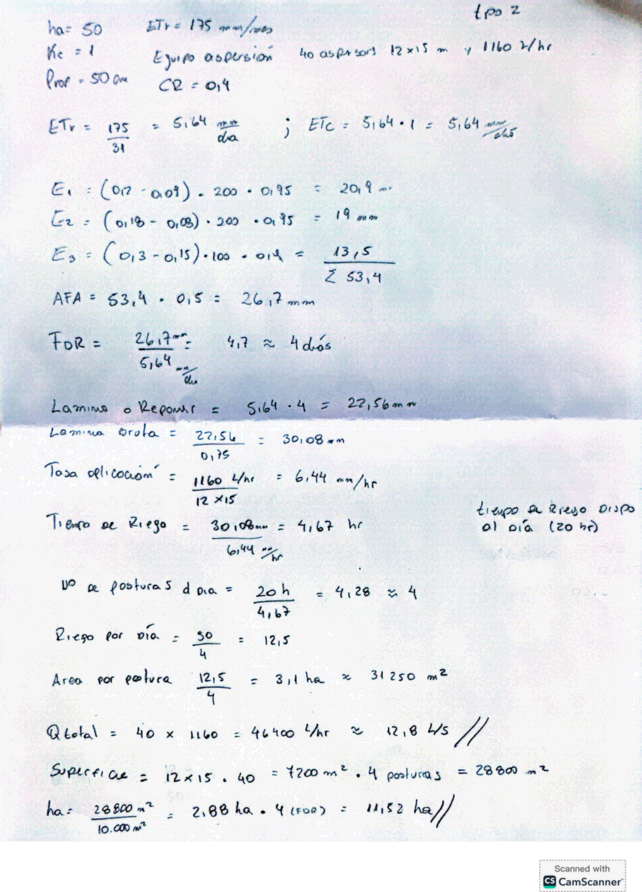 tipo 2
ha= 50 ETr = 175 mm/mes
Kc = 1 Equipo aspersión 40 aspersors 12x15 m y 1160 l/hr
Prof = 50 cm CR = 0,4
ETr = 175/31 = 5,64 mm/día ; ETc = 5,64 · 1 = 5,64 mm/días
E1 = (0,2 - 0,09) · 200 · 0,95 = 20,9 mm
E2 = (0,18 - 0,08) · 200 · 0,95 = 19 mm
E3 = (0,3 - 0,15) · 100 · 0,9 = 13,5
Σ 53,4
AFA = 53,4 · 0,5 = 26,7 mm
FDR = 26,7 mm / 5,64 mm/dia = 4,7 ≈ 4 días
Lamina a Reponer = 5,64 · 4 = 22,56 mm
Lamina bruta = 22,56/0,75 = 30,08 mm
Tasa aplicación = 1160 L/hr / 12 x15 = 6,44 mm/hr
tiempo de Riego dispo
al día (20 hr)
Tiempo de Riego = 30,08 mm / 6,44 mm/hr = 4,67 hr
Nº de posturas d Dia = 20 h / 4,67 = 4,28 ≈ 4
Riego por Día = 50/4 = 12,5
Area por postura 12,5/4 = 3,1 ha ≈ 31250 m²
Qtotal = 40 x 1160 = 46400 L/hr ≈ 12,8 L/s //
Superficie = 12 x 15 · 40 = 7200 m² · 4 posturas = 28800 m²
ha= 28800 m² / 10.000 m² = 2,88 ha · 4 (FDR) = 11,52 ha //
Scanned with
CS CamScanner